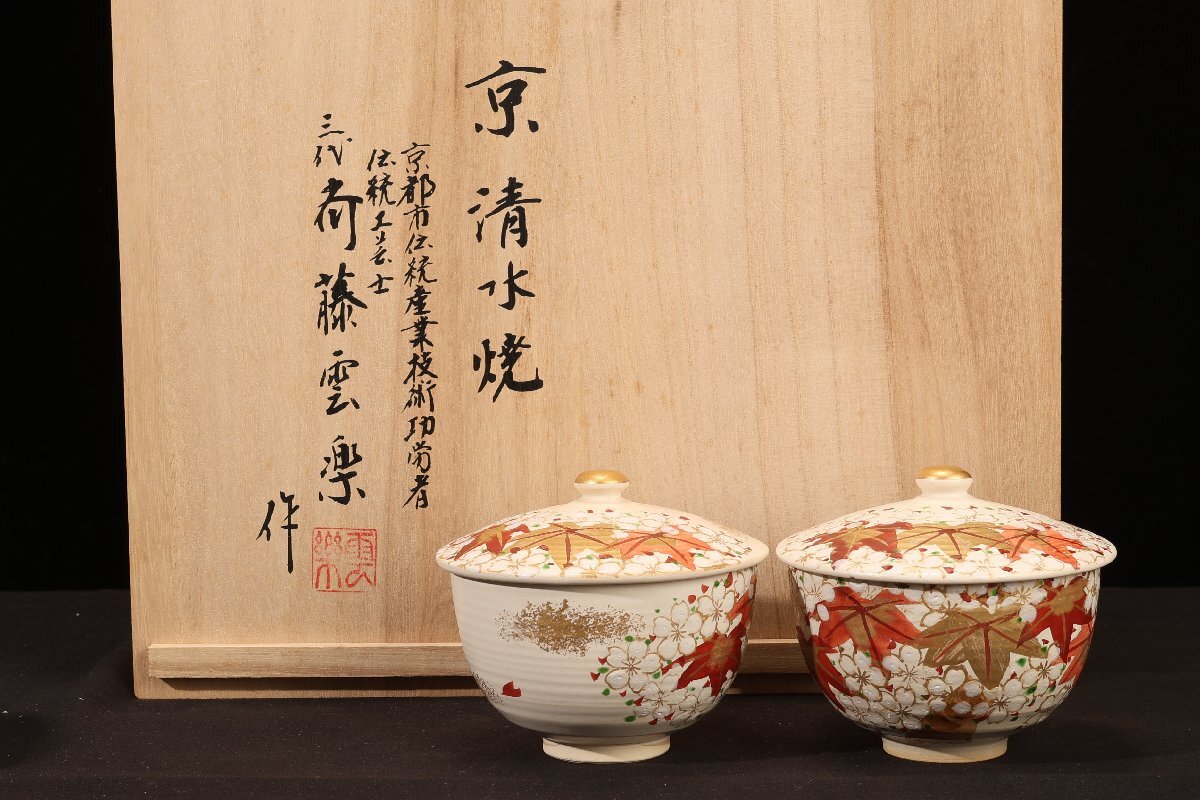 京 清水焼
京都市伝統産業技術功労者
伝統工芸士
三代 斉藤雲楽
作
雲楽